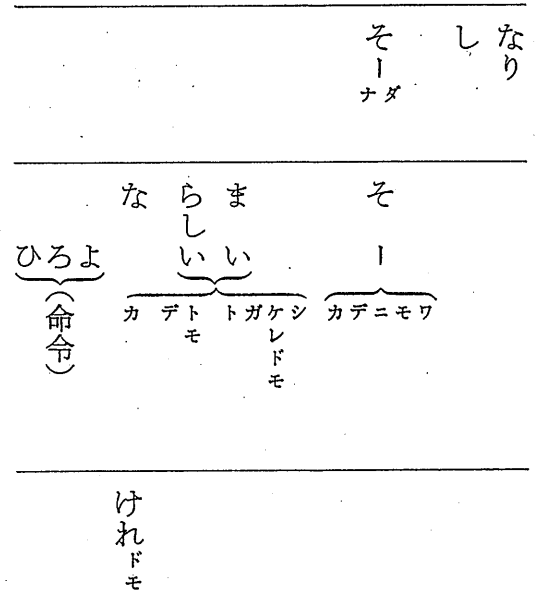 なり
し
そーダ
ナ
そー
ワ
モ
ニ
デ
カ
まい
らしい
シ
ケレドモ
ガ
ト
トモ
デ
カ
な
よ
ろ
ひ
（命令）
けれドモ